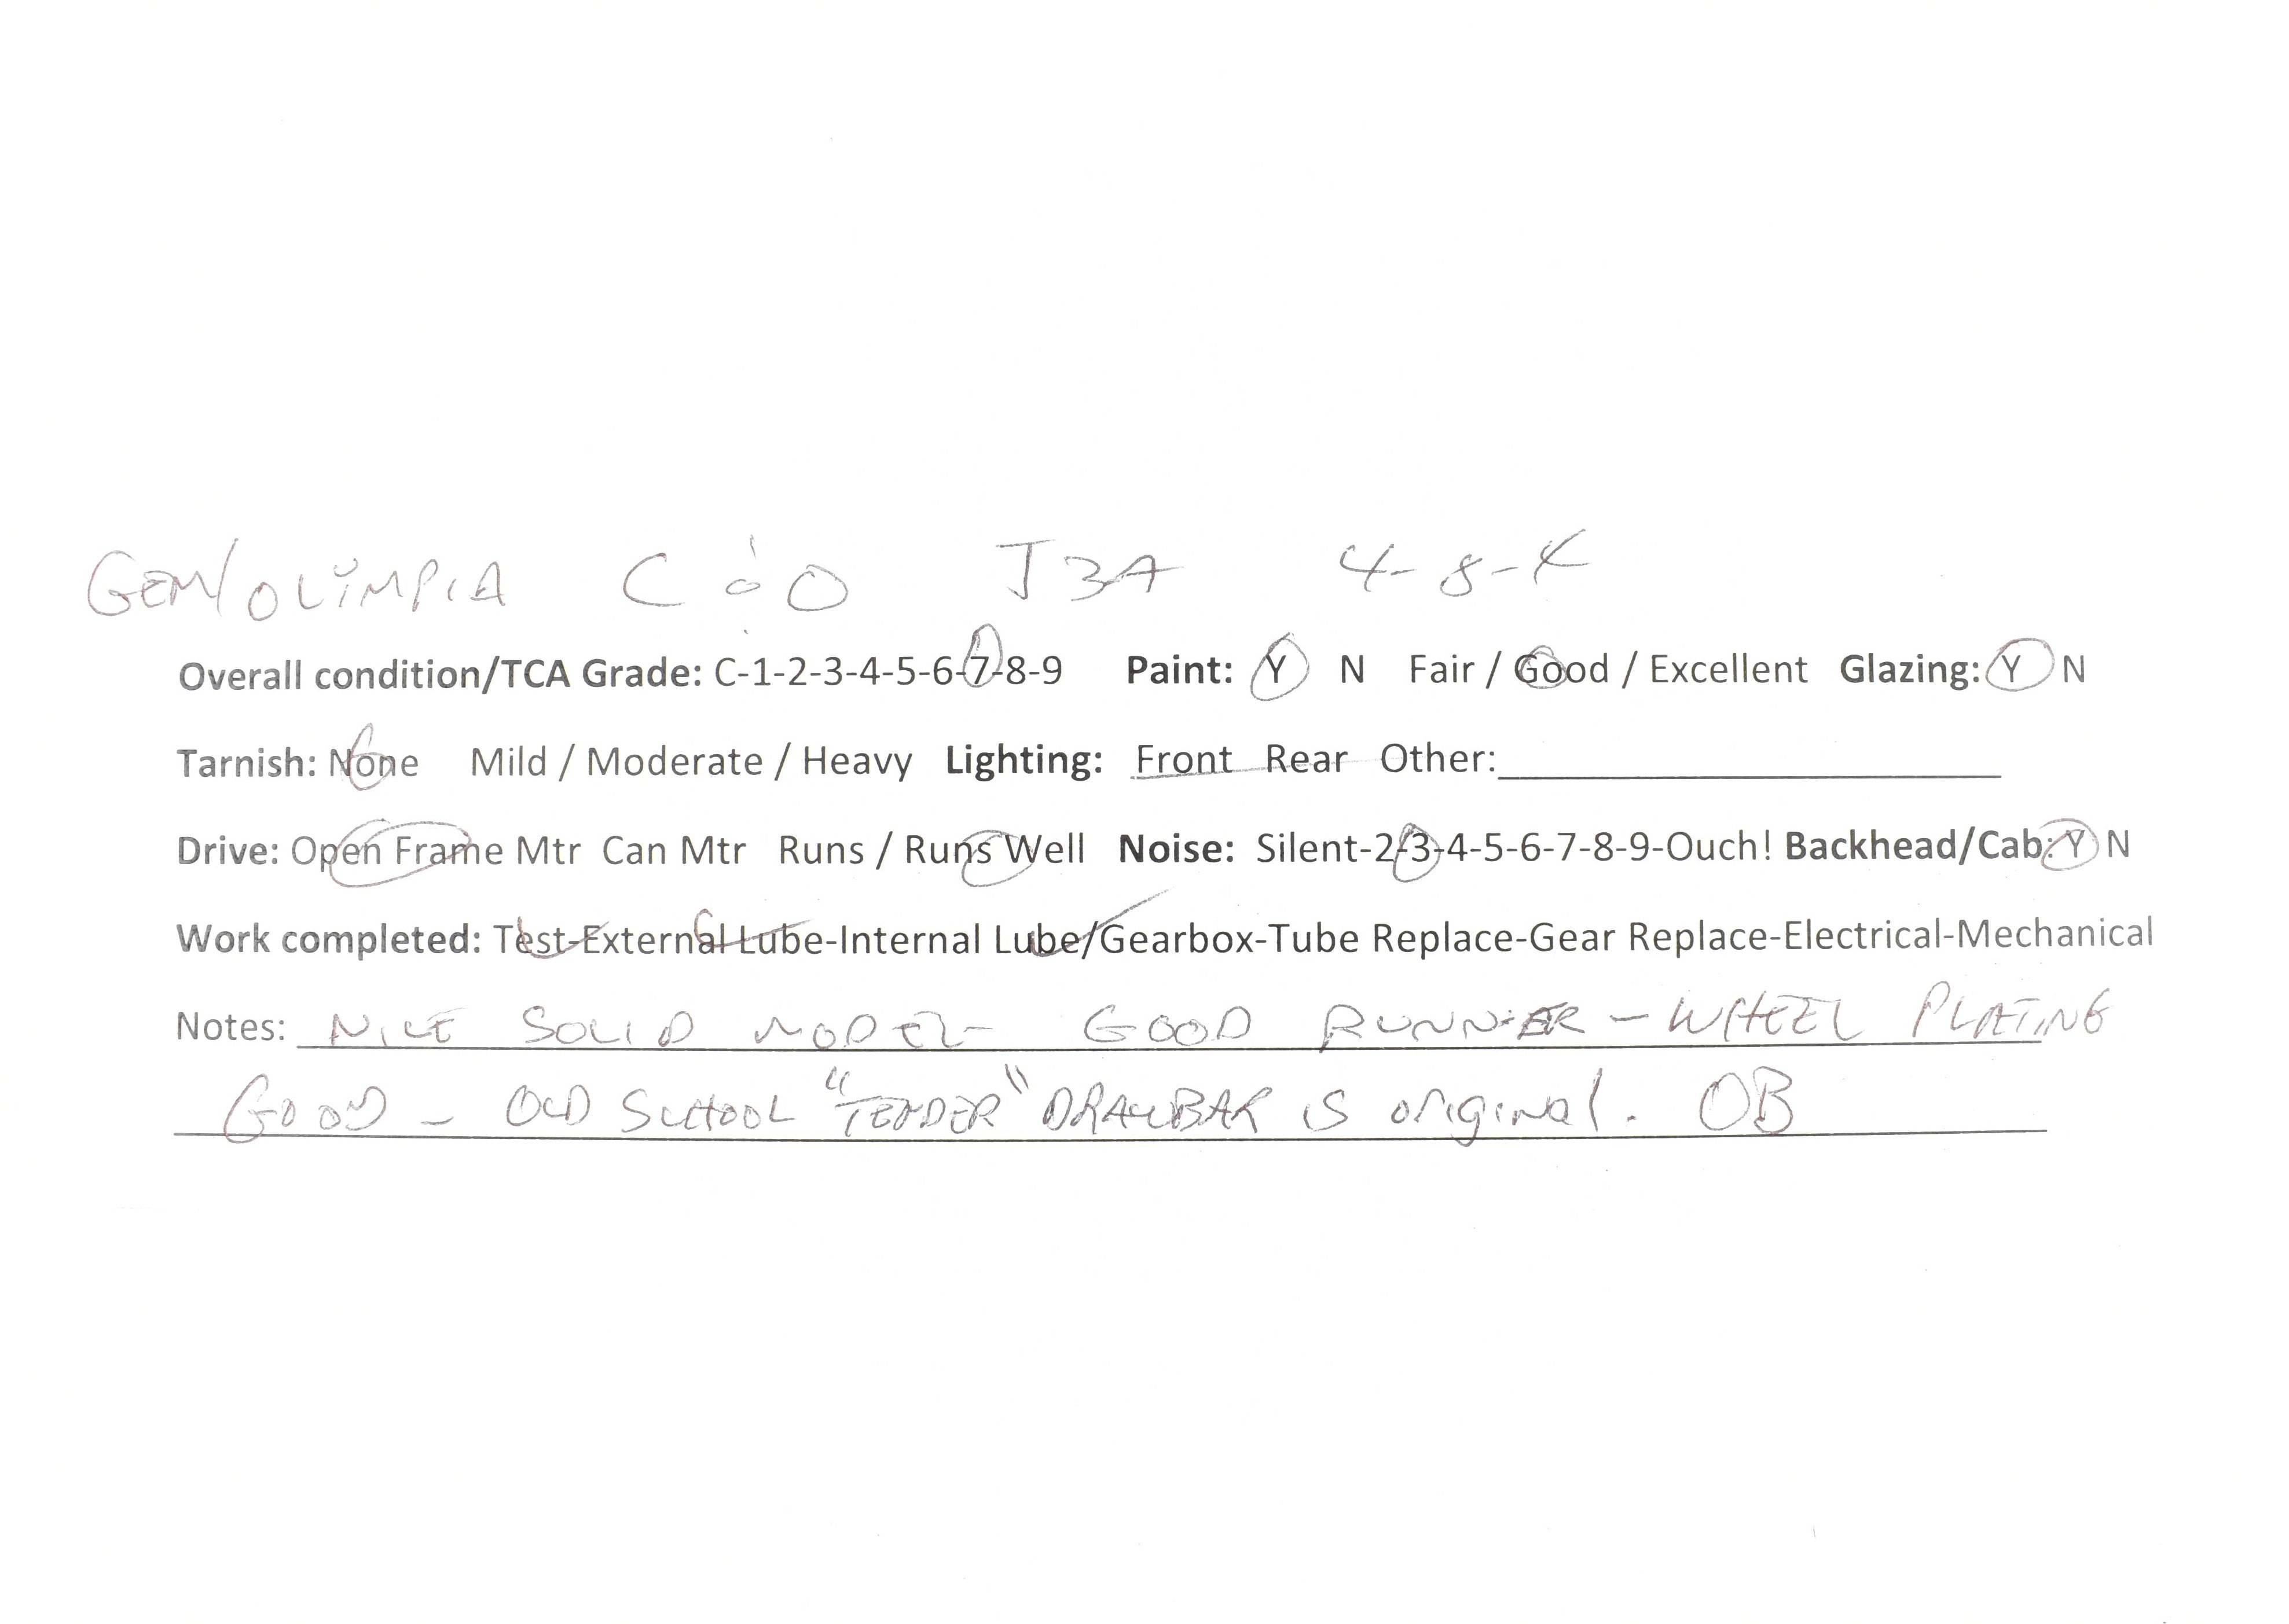 GEM/OLIMPIA C & O J3A 4-8-4
Overall condition/TCA Grade: C-1-2-3-4-5-6-7-8-9 Paint: Y N Fair / Good / Excellent Glazing: Y N
Tarnish: None Mild / Moderate / Heavy Lighting: Front Rear Other:
Drive: Open Frame Mtr Can Mtr Runs / Runs Well Noise: Silent-2-3-4-5-6-7-8-9-Ouch! Backhead/Cab: Y N
Work completed: Test-External Lube-Internal Lube/Gearbox-Tube Replace-Gear Replace-Electrical-Mechanical
Notes: NICE SOLID MODEL - GOOD RUNNER - WHEEL PLATING
GOOD - OLD SCHOOL "TENDER" DRAWBAR IS original. OB